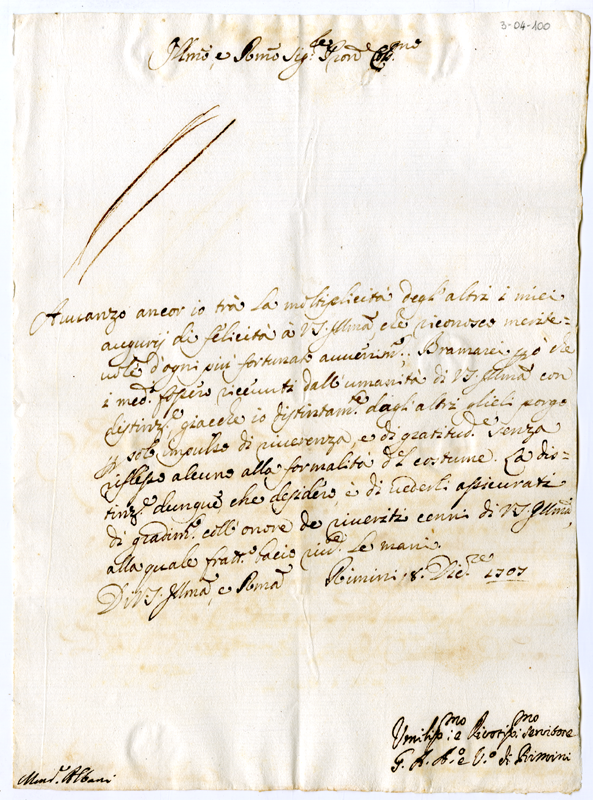 3-04-100
Illmo, e Rmo Sigre Pron Colmo
Auuanzo ancor io trà la moltiplicità degl'altri i miei
augurij di felicità à VS. Illma, che riconosco merite=
uole d'ogni più fortunato auuenimto. Bramarei però che
i medi fossero riceuuti dall'umanità di VS. Illma con
distinze, giacche io distintamte dagli altri glieli porgo
per solo impulso di riuerenza, e di gratitude senza
riflesso alcuno alla formalità del costume. La dis=
tinze dunque che desidero è di uederli assicurati
di gradimto coll'onore de riueriti cenni di VS. Illma,
alla quale fratto bacio riue le mani.
Di VS. Illma, e Rma Rimini 18. Dicre 1707
Umilismo e Diuotismo servitore
G. A. Ao e Vo di Rimini
Monsr Albani